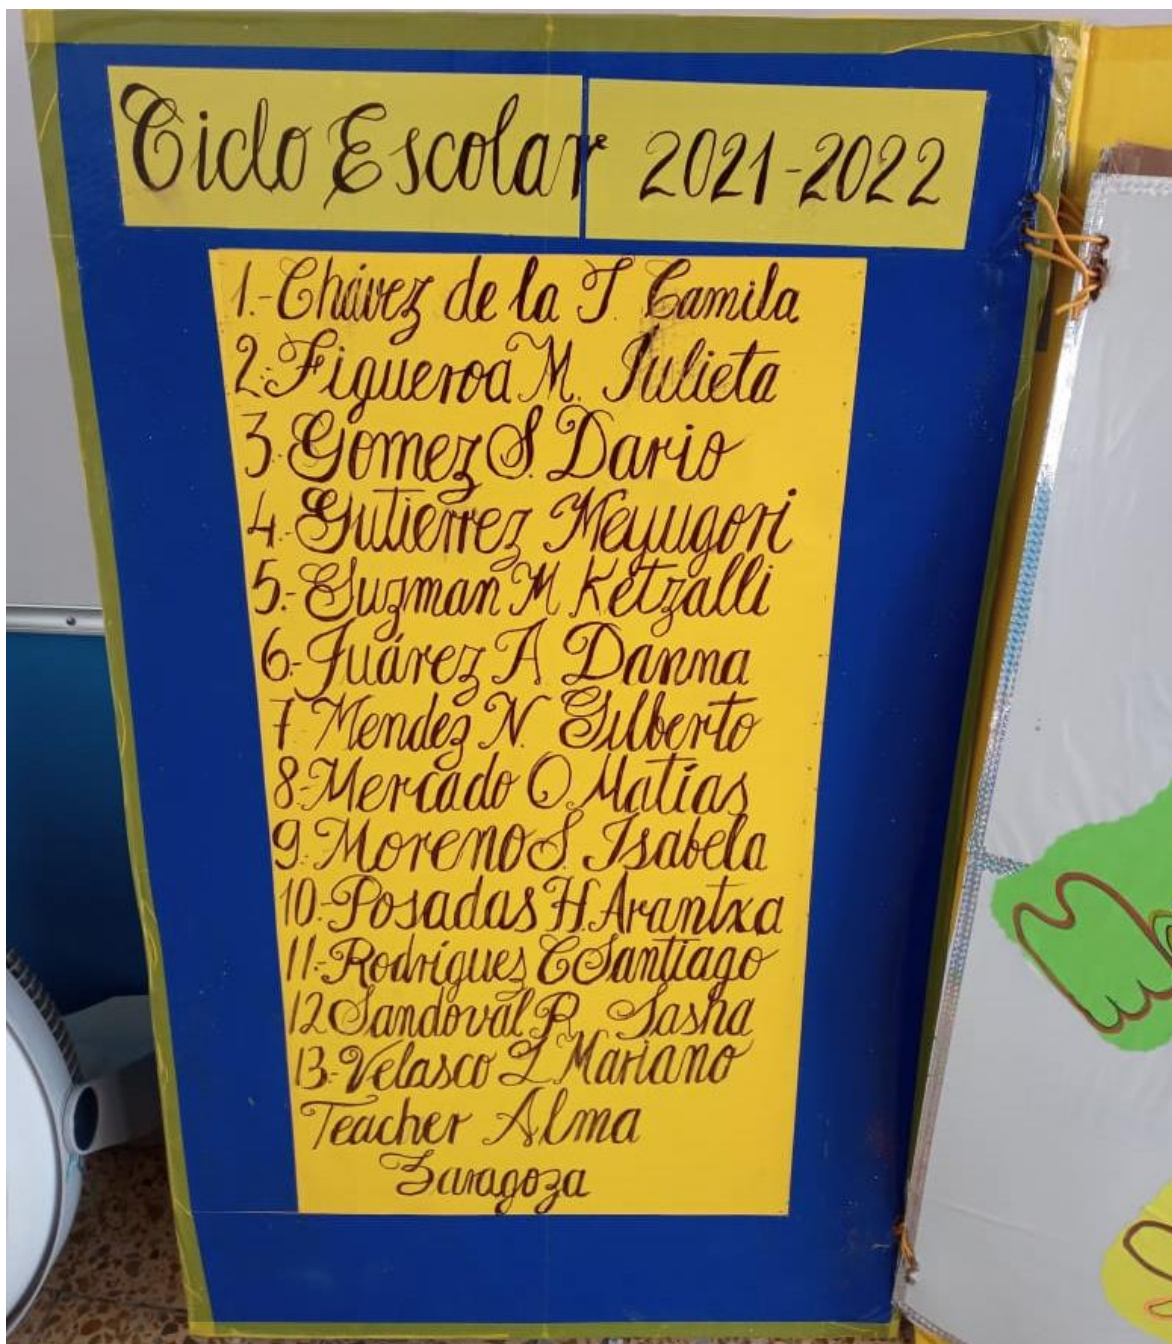 Ciclo Escolar 2021-2022
1.-Chávez de la T. Camila
2.-Figueroa M. Julieta
3.-Gomez S. Dario
4.-Gutierrez Meyugori
5.-Guzman M Ketzalli
6.-Juárez A Danna
7 Mendez N. Gilberto
8.-Mercado O. Matías
9.-Moreno S. Isabela
10.-Posadas H. Arantxa
11.-Rodríguez C Santiago
12 Sandoval R Sasha
13.-Velasco L Mariano
Teacher Alma
Zaragoza